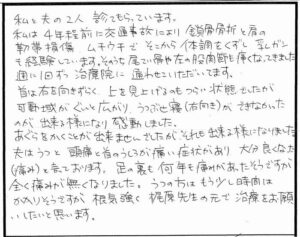 私と夫の2人診てもらっています。
私は4年程前に交通事故により鎖骨骨折と肩の
靭帯損傷 ムチウチで そこから体調をくずし 乳ガン
も経験しています。そのうち尾てい骨や左の股関節も痛くなってきました
週に1回ずつ治療院に通わせていただいてます。
首は右を向きずらく 上を見上げるのもつらい状態でしたが
可動域がぐんと広がり うつぶせ寝(右向き)ができなかった
のが出来る様になり感動しました。
あぐらをかくことが出来ませんでしたが それも出来る様になりました
夫はうつと頭痛と首のうしろが痛い症状があり 大分良くなった
(痛み)と言っております。足の裏も何年も痛みがあったそうですが
全く痛みが無くなりました。うつの方はもう少し時間は
かかりそうですが 根気強く 梶原先生の元で治療をお願
いしたいと思います。